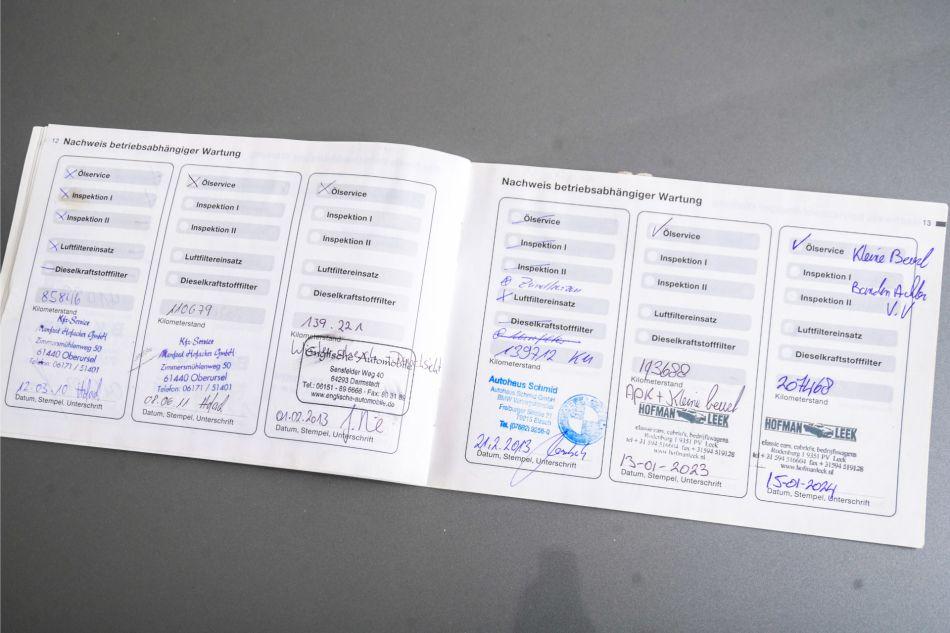 12 Nachweis betriebsabhängiger Wartung
Ölservice
Inspektion I
Inspektion II
Luftfiltereinsatz
Dieselkraftstofffilter
85846
Kilometerstand
Kfz-Service
Manfred Hofacker GmbH
Zimmersmühlenweg 50
61440 Oberursel
Telefon: 06171 / 51401
12.03.10
Datum, Stempel, Unterschrift
Ölservice
Inspektion I
Inspektion II
Luftfiltereinsatz
Dieselkraftstofffilter
110679
Kilometerstand
Kfz-Service
Manfred Hofacker GmbH
Zimmersmühlenweg 50
61440 Oberursel
Telefon: 06171 / 51401
07.06.11
Datum, Stempel, Unterschrift
Ölservice
Inspektion I
Inspektion II
Luftfiltereinsatz
Dieselkraftstofffilter
139.221
Kilometerstand
Englische Automobile
Sensfelder Weg 40
64293 Darmstadt
Tel.: 06151 - 89 6666 - Fax: 80 31 89
www.englische-automobile.de
01.02.2013
Datum, Stempel, Unterschrift
Nachweis betriebsabhängiger Wartung
13
Ölservice
Inspektion I
Inspektion II
Luftfiltereinsatz
Dieselkraftstofffilter
139712 KM
Kilometerstand
Autohaus Schmid
Autohaus Schmid GmbH
BMW Vertragshändler
Freiburger Straße 21
79215 Elzach
Tel. (07682) 9256-0
21.2.2013
Datum, Stempel, Unterschrift
Ölservice
Inspektion I
Inspektion II
Luftfiltereinsatz
Dieselkraftstofffilter
193688
Kilometerstand
APK + Kleine beurt
HOFMAN LEEK
classic cars, cabrio's, bedrijfswagens
Rodenburg 1 9351 PV Leek
tel +31 594 516604 fax +31 594 519128
www.hofmanleek.nl
13-01-2023
Datum, Stempel, Unterschrift
Ölservice Kleine Beurt
Inspektion I
Banden Achter
Inspektion II
V.V
Luftfiltereinsatz
Dieselkraftstofffilter
207468
Kilometerstand
HOFMAN LEEK
classic cars, cabrio's, bedrijfswagens
Rodenburg 1 9351 PV Leek
tel +31 594 516604 fax +31594 519128
www.hofmanleek.nl
15-01-2024
Datum, Stempel, Unterschrift